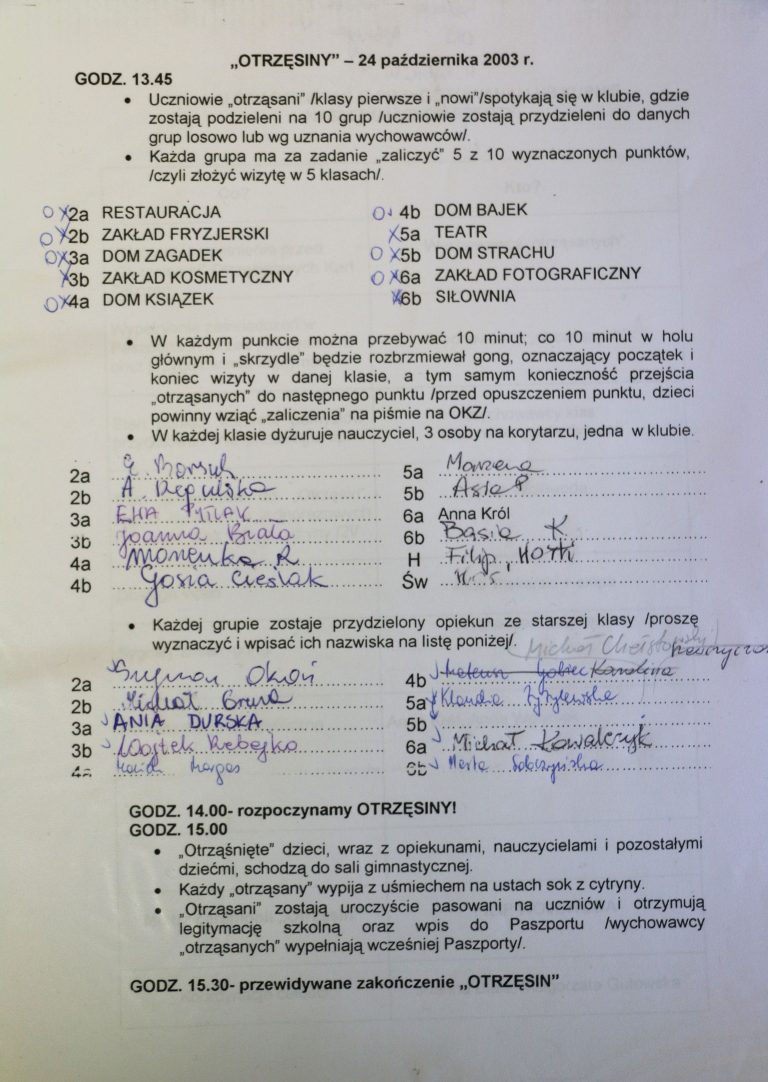 „OTRZĘSINY” – 24 października 2003 r.
GODZ. 13.45
• Uczniowie „otrząsani” /klasy pierwsze i „nowi”/spotykają się w klubie, gdzie
zostają podzieleni na 10 grup /uczniowie zostają przydzieleni do danych
grup losowo lub wg uznania wychowawców/.
• Każda grupa ma za zadanie „zaliczyć” 5 z 10 wyznaczonych punktów,
/czyli złożyć wizytę w 5 klasach/.
2a RESTAURACJA 4b DOM BAJEK
2b ZAKŁAD FRYZJERSKI 5a TEATR
3a DOM ZAGADEK 5b DOM STRACHU
3b ZAKŁAD KOSMETYCZNY 6a ZAKŁAD FOTOGRAFICZNY
4a DOM KSIĄZEK 6b SIŁOWNIA
• W każdym punkcie można przebywać 10 minut; co 10 minut w holu
głównym i „skrzydle” będzie rozbrzmiewał gong, oznaczający początek i
koniec wizyty w danej klasie, a tym samym konieczność przejścia
„otrząsanych” do następnego punktu /przed opuszczeniem punktu, dzieci
powinny wziąć „zaliczenia” na piśmie na OKZ/.
• W każdej klasie dyżuruje nauczyciel, 3 osoby na korytarzu, jedna w klubie.
2a 5a Marzena
2b A. Regulska 5b Asia P
3a EWA PYTLAK 6a Anna Król
3b Joanna Biała 6b Basia K
4a Monenka R. H Filip,
4b Gosia Cieślak Św
• Każdej grupie zostaje przydzielony opiekun ze starszej klasy /proszę
wyznaczyć i wpisać ich nazwiska na listę poniżej/. Michał
2a Szymon Okoń 4b Karolina
2b Michał 5a Klaudia Zyzylewska
3a ANIA DURSKA 5b
3b Wojtek Rebejko 6a Michał Kowalczyk
4a 6b Marta Sobczyńska
GODZ. 14.00- rozpoczynamy OTRZĘSINY!
GODZ. 15.00
• „Otrząśnięte” dzieci, wraz z opiekunami, nauczycielami i pozostałymi
dziećmi, schodzą do sali gimnastycznej.
• Każdy „otrząsany” wypija z uśmiechem na ustach sok z cytryny.
• „Otrząsani” zostają uroczyście pasowani na uczniów i otrzymują
legitymację szkolną oraz wpis do Paszportu /wychowawcy
„otrząsanych” wypełniają wcześniej Paszporty/.
GODZ. 15.30- przewidywane zakończenie „OTRZĘSIN”